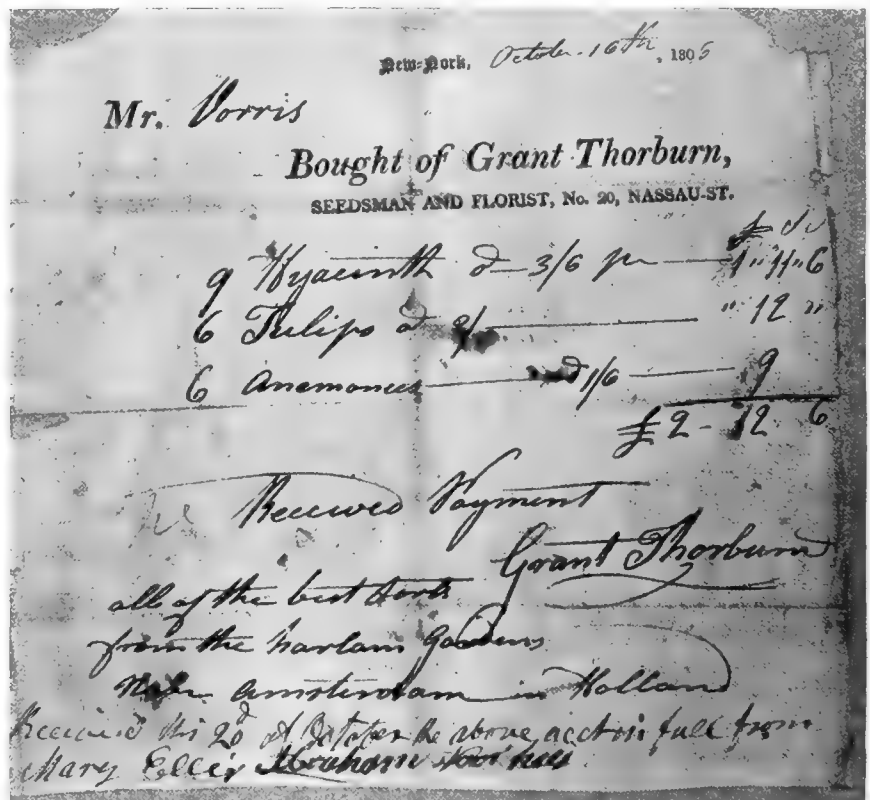 New-York, October 16th, 1805
Mr. Vorris
Bought of Grant Thorburn,
SEEDSMAN AND FLORIST, No. 20, NASSAU-ST.
£
9 Hyacinth @ 3/6 pr 1 " 11 " 6
6 Tulips @ 2/ " 12 "
6 Anemones @ 1/6 9
£ 2 - 12 6
Received Payment
Grant Thorburn
all of the best sorts
from the harlam Gardens
Amsterdam in Holland
Received this 2d of October the above acct in full from
Mary Ellis Abraham